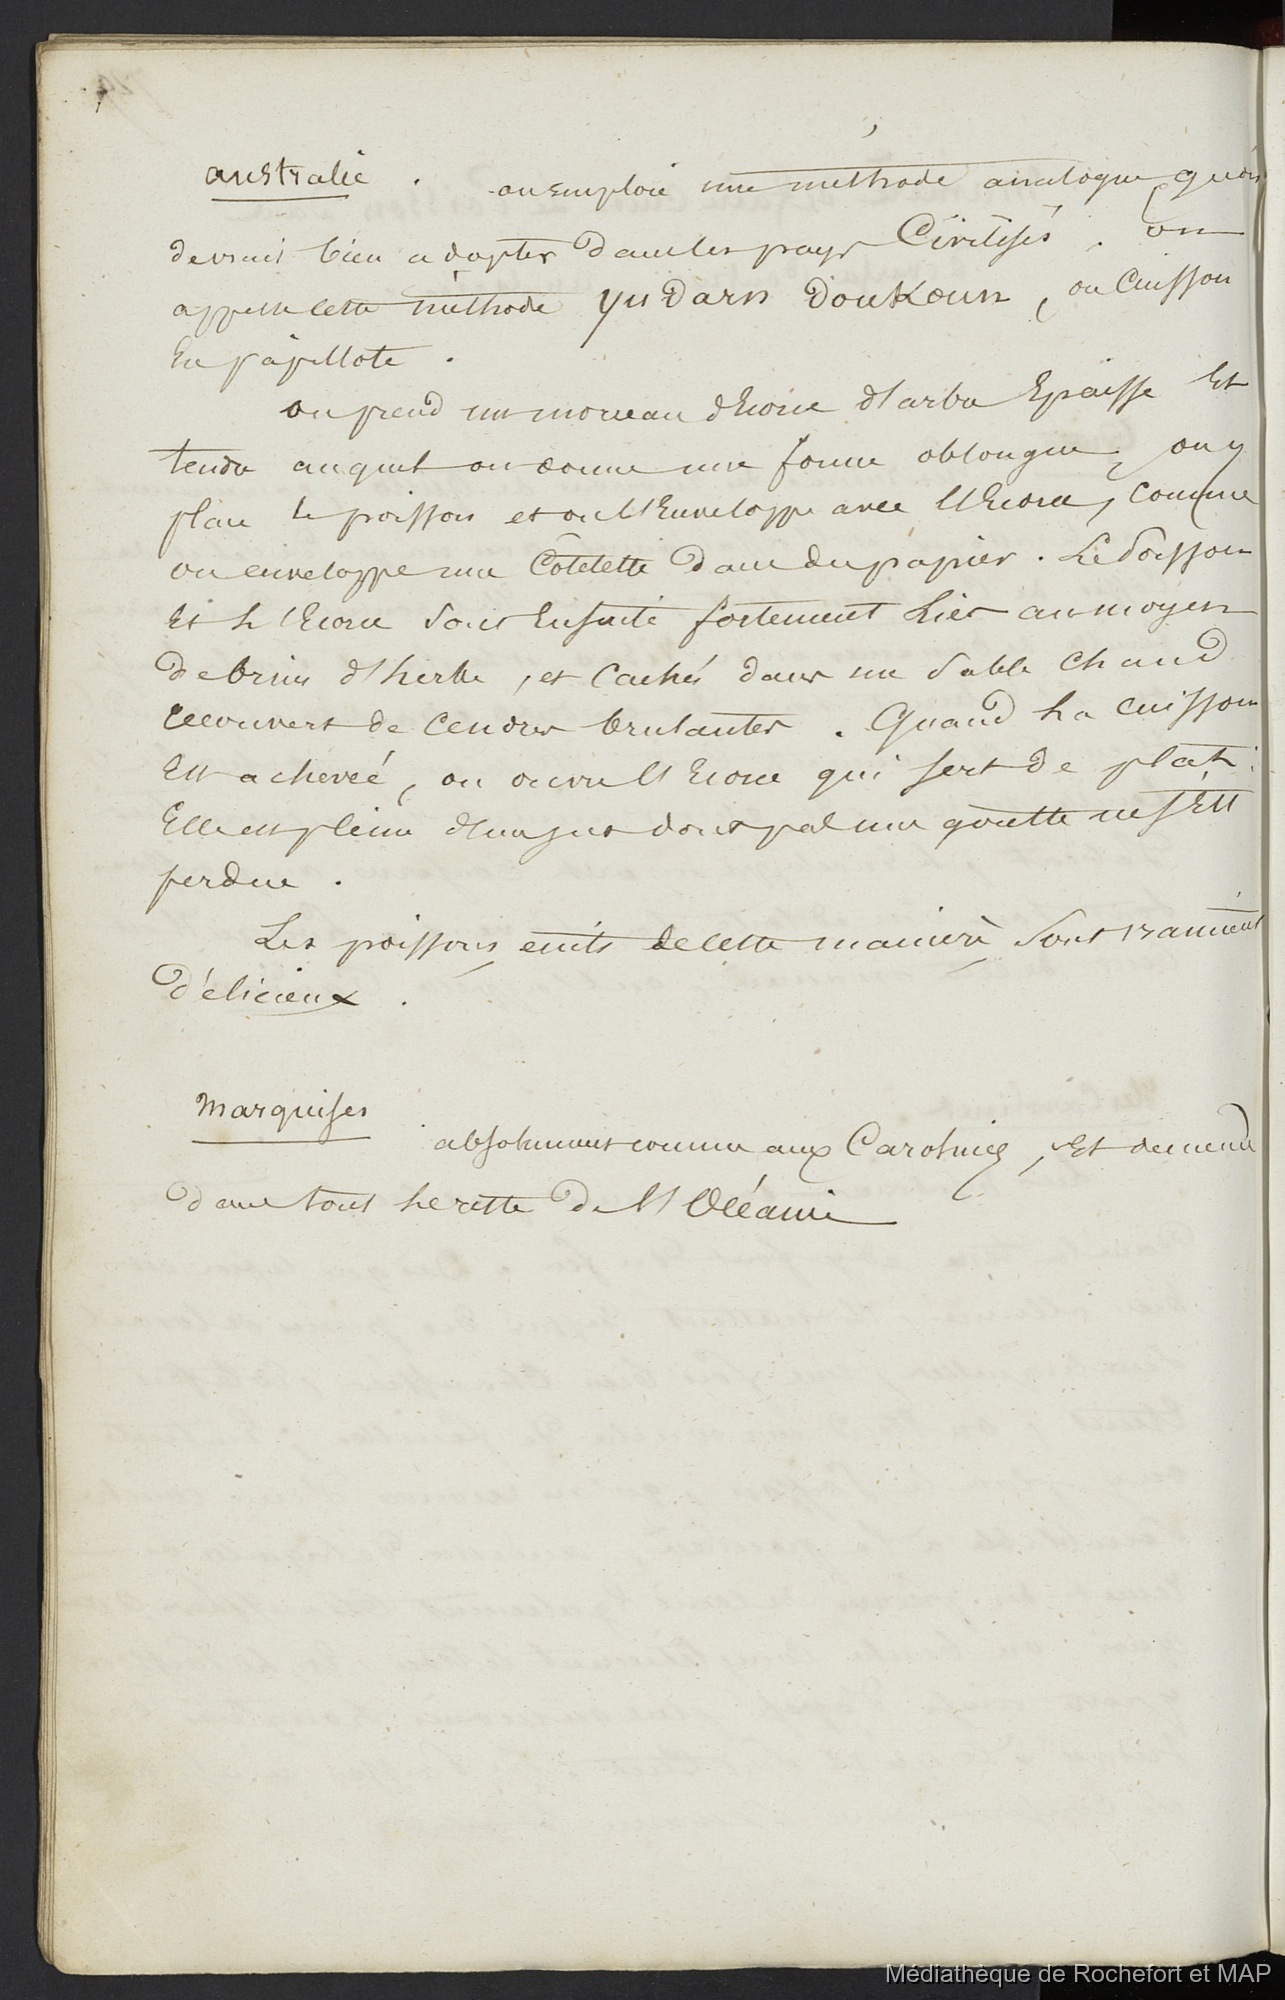 australie . on emploie une méthode analogue, qu'on
devrait bien adopter dans les pays Civilisés . on
appelle cette méthode yudarn doukoun, ou Cuisson
En papillote .
on prend un morceau d'Ecorce d'arbre Epaisse Et
tendre auquel on donne une forme oblongue, on y
place le poisson et on l'Enveloppe avec l'Ecorce, comme
on enveloppe une Côtelette dans du papier . Le Poisson
Et l'Ecorce sont Ensuite fortement Liés au moyen
de brins d'herbe, et Cachés dans un sable chaud
recouvert de cendres brulantes . Quand La cuisson
Est achevée, on ouvre l'Ecorce qui sert de plat :
Elle est pleine d'un jus dont pas une goutte ne s'Est
perdue .
Les poissons, cuits de cette manière, sont vraiment
délicieux .
Marquises
absolument comme aux Carolines, Et de même
dans tout le reste de l'Océanie
Médiathèque de Rochefort et MAP